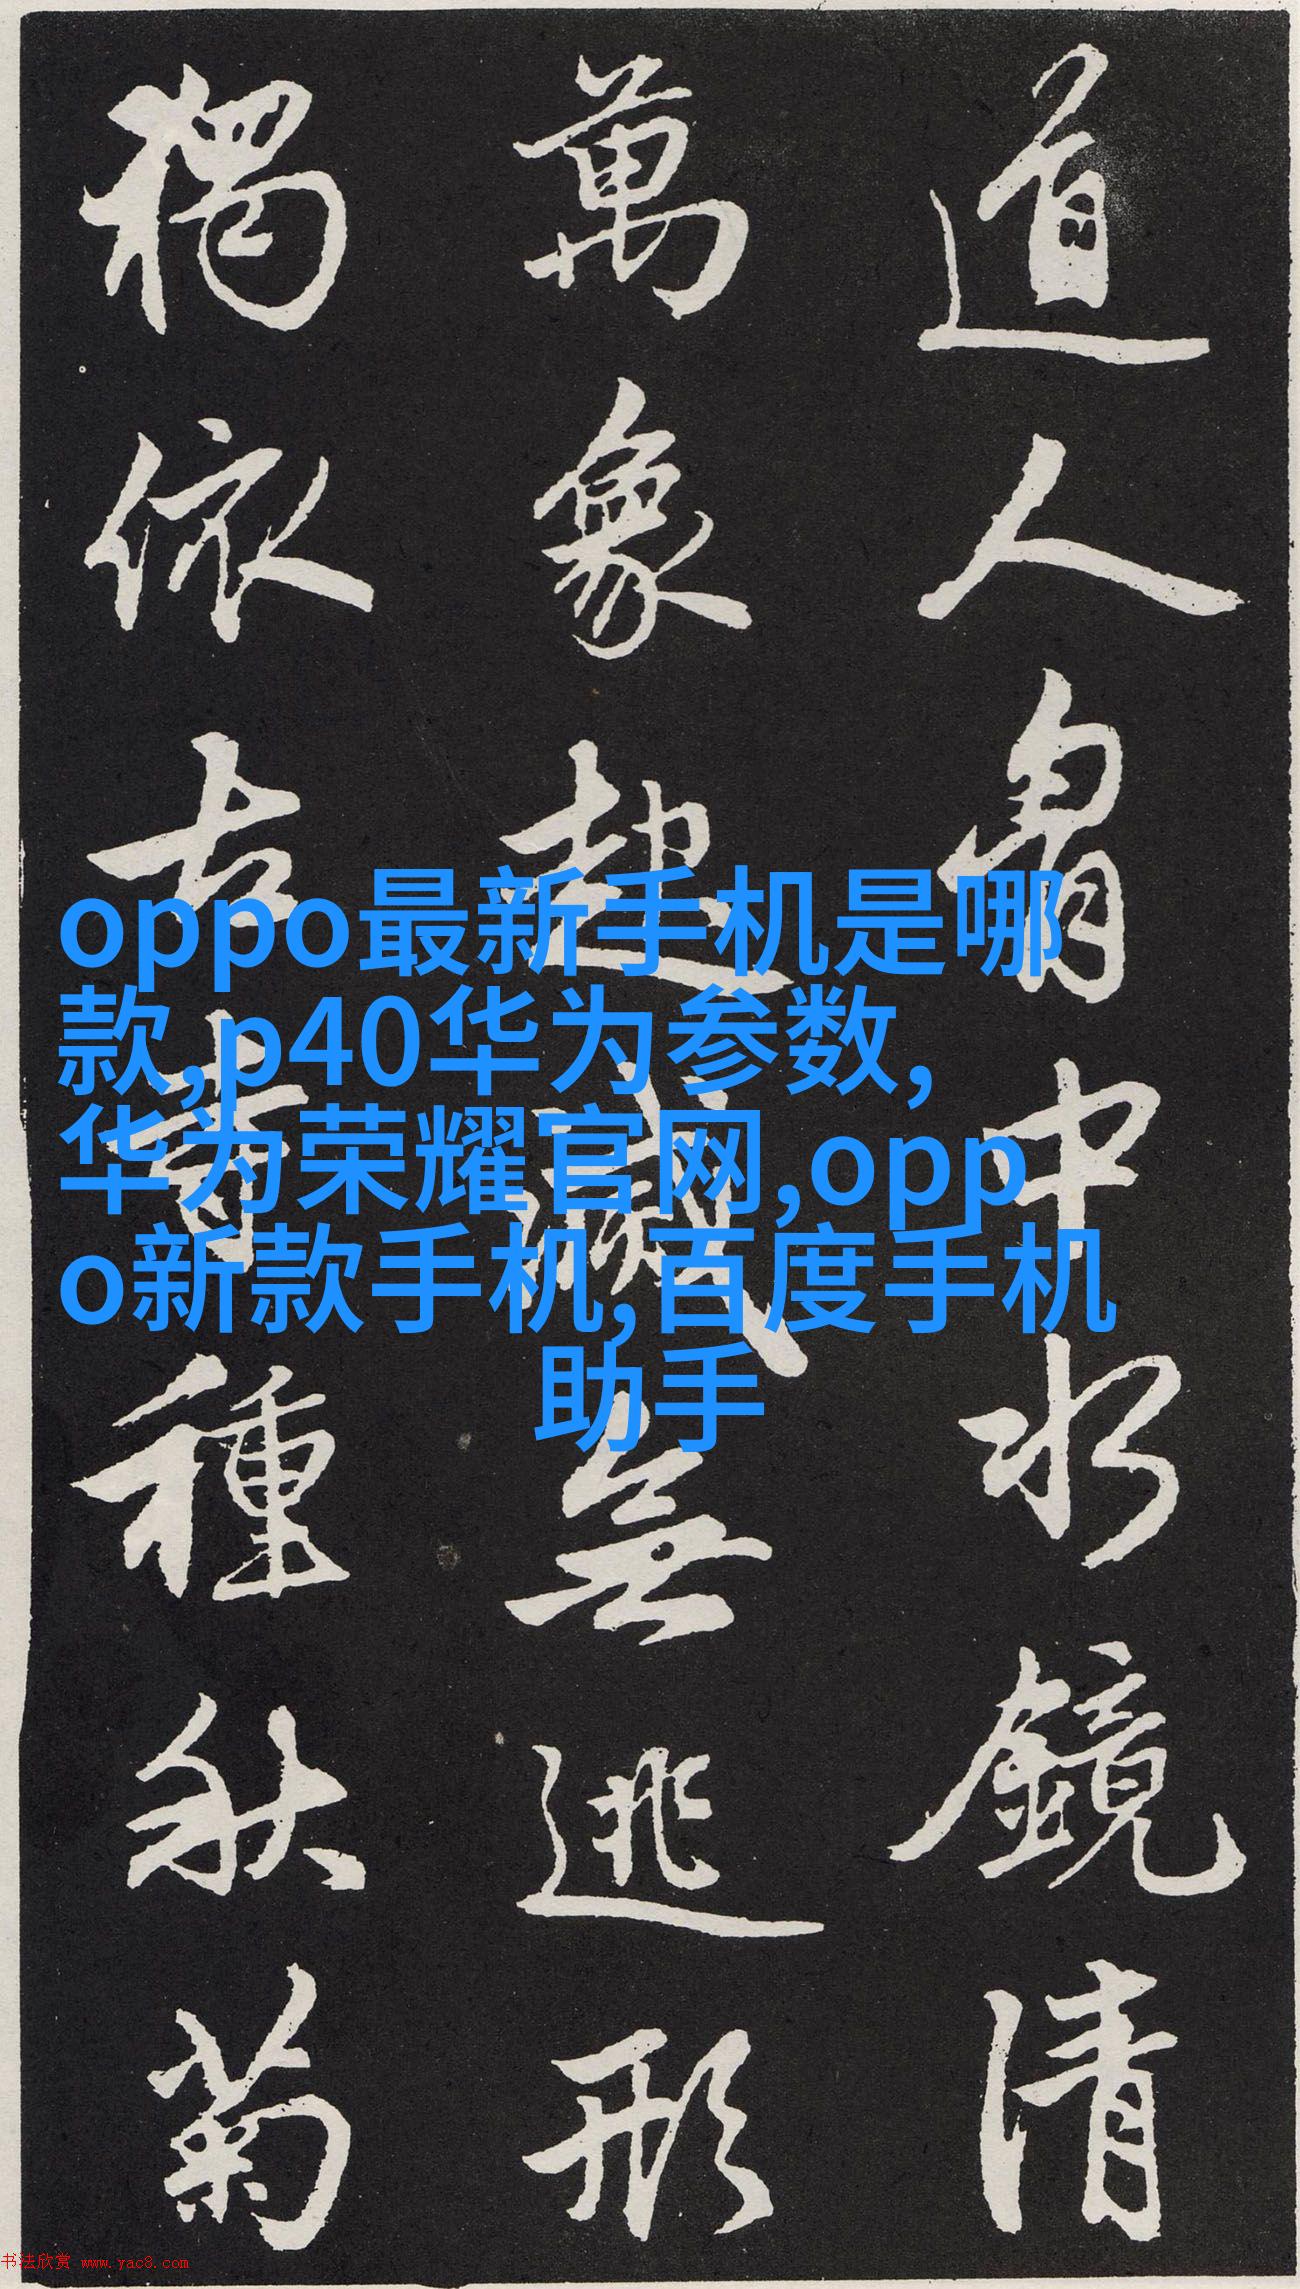 道人胷中水鏡清
萬象起滅無逃形
獨依古寺種秋菊
oppo最新手机是哪
款,p40华为参数,
华为荣耀官网,opp
o新款手机,百度手机
助手
书法欣赏 www.yac8.com